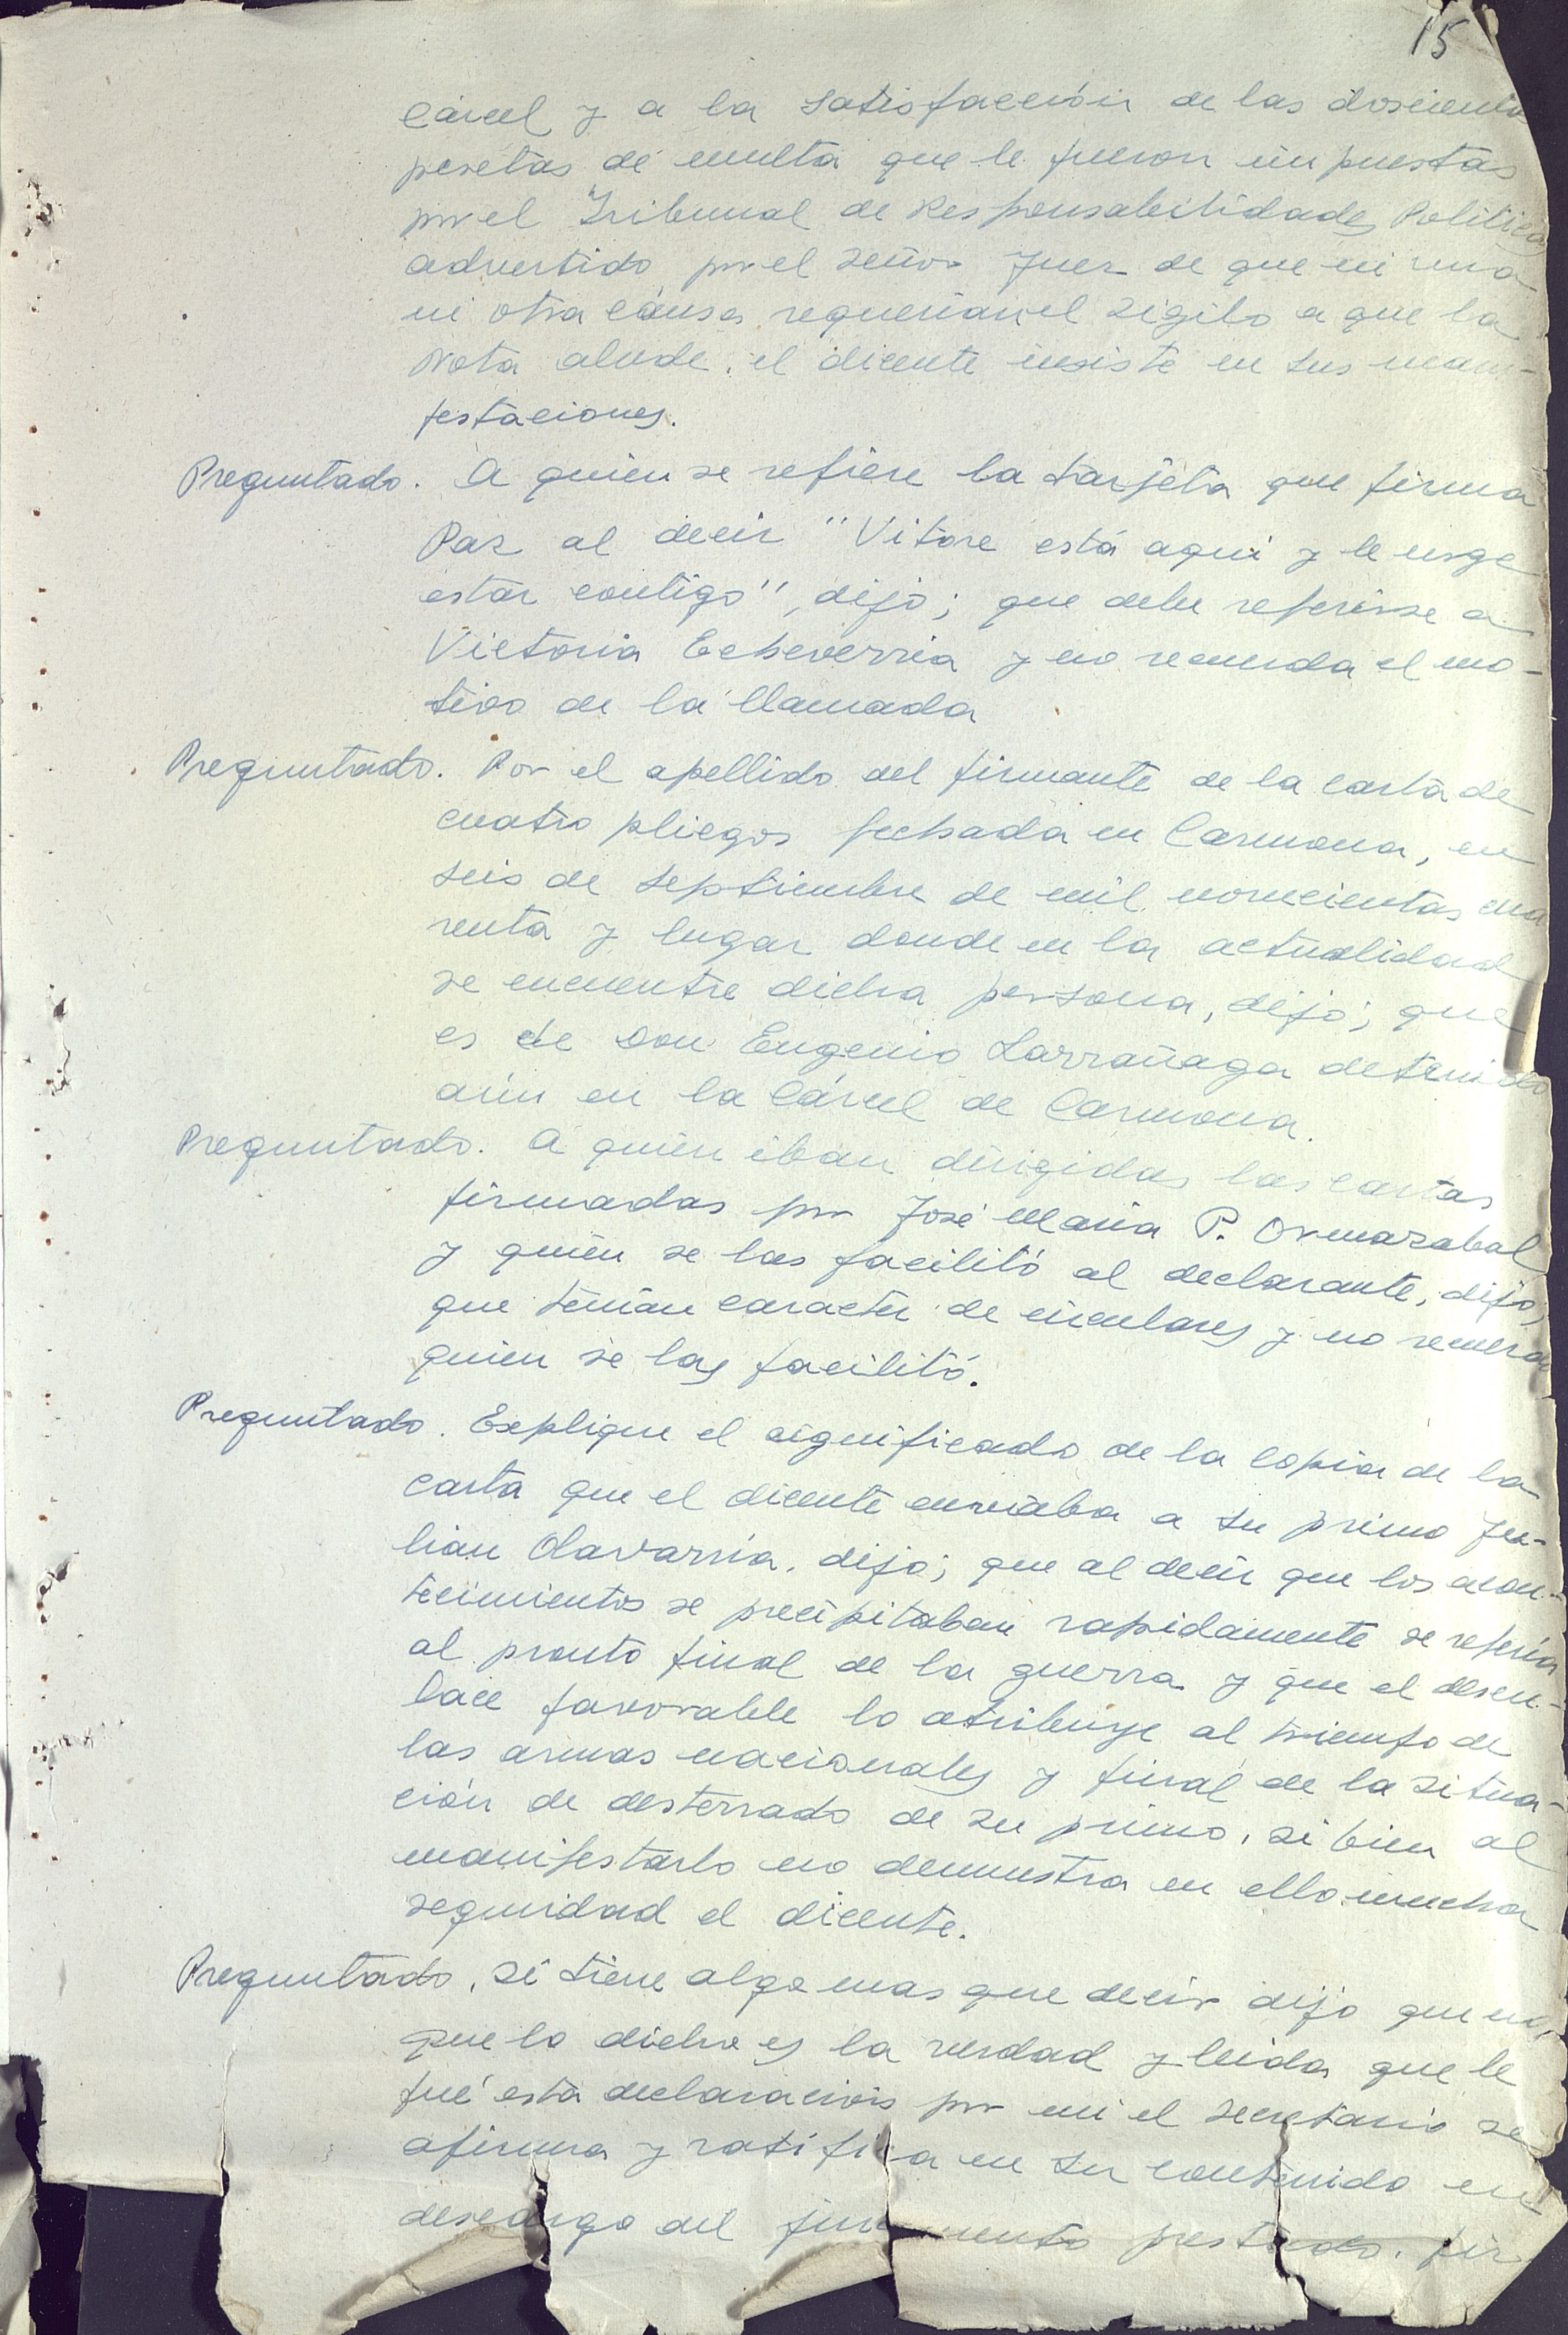 15
Cárcel y a la satisfacción de las doscientas
pesetas de multa que le fueron impuestas
por el Tribunal de Responsabilidades Politicas
advertido por el Señor Juez de que ni una
ni otra causas requerian el sigilo a que la
nota alude, el dicente insiste en sus mani-
festaciones.
Preguntado. A quien se refiere la tarjeta que firma
Paz al decir "Vitore está aqui y le urge
estar contigo", dijo; que debe referirse a
Victoria Echeverria y no recuerda el mo-
tivo de la llamada
Preguntado. Por el apellido del firmante de la carta de
cuatro pliegos fechada en Carmona, en
seis de septiembre de mil novecientos cua
renta y lugar donde en la actualidad
se encuentre dicha persona, dijo; que
es de Don Eugenio Larrañaga detenido
aún en la Cárcel de Carmona.
Preguntado. A quien iban dirigidas las cartas
firmadas por José Maria P. Ormazabal
y quien se las facilitó al declarante, dijo;
que tenian caracter de circulares y no recuerda
quien se las facilitó.
Preguntado. Explique el significado de la copia de la
carta que el dicente enviaba a su primo Ju-
lian Olavarria, dijo; que al decir que los acon-
tecimientos se precipitaban rapidamente se referia
al pronto final de la guerra y que el desen-
lace favorable lo atribuye al triunfo de
las armas nacionales y final de la situa-
ción de desterrado de su primo, si bien al
manifestarlo no demuestra en ello mucha
seguridad el dicente.
Preguntado, si tiene algo mas que decir dijo que no,
que lo dicho es la verdad y leida que le
fué esta declaración por mi el secretario se
afirma y ratifica en su contenido en
descargo del juramento prestado, fir